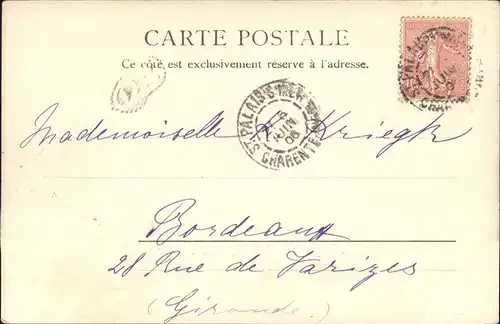 CARTE POSTALE
Ce côté est exclusivement réservé à l'adresse.
ST PALAIS-S-MER
JUIN
CHARENTE
Mademoiselle Kriegk
Bordeaux
28 Rue de Varizes
(Gironde.)